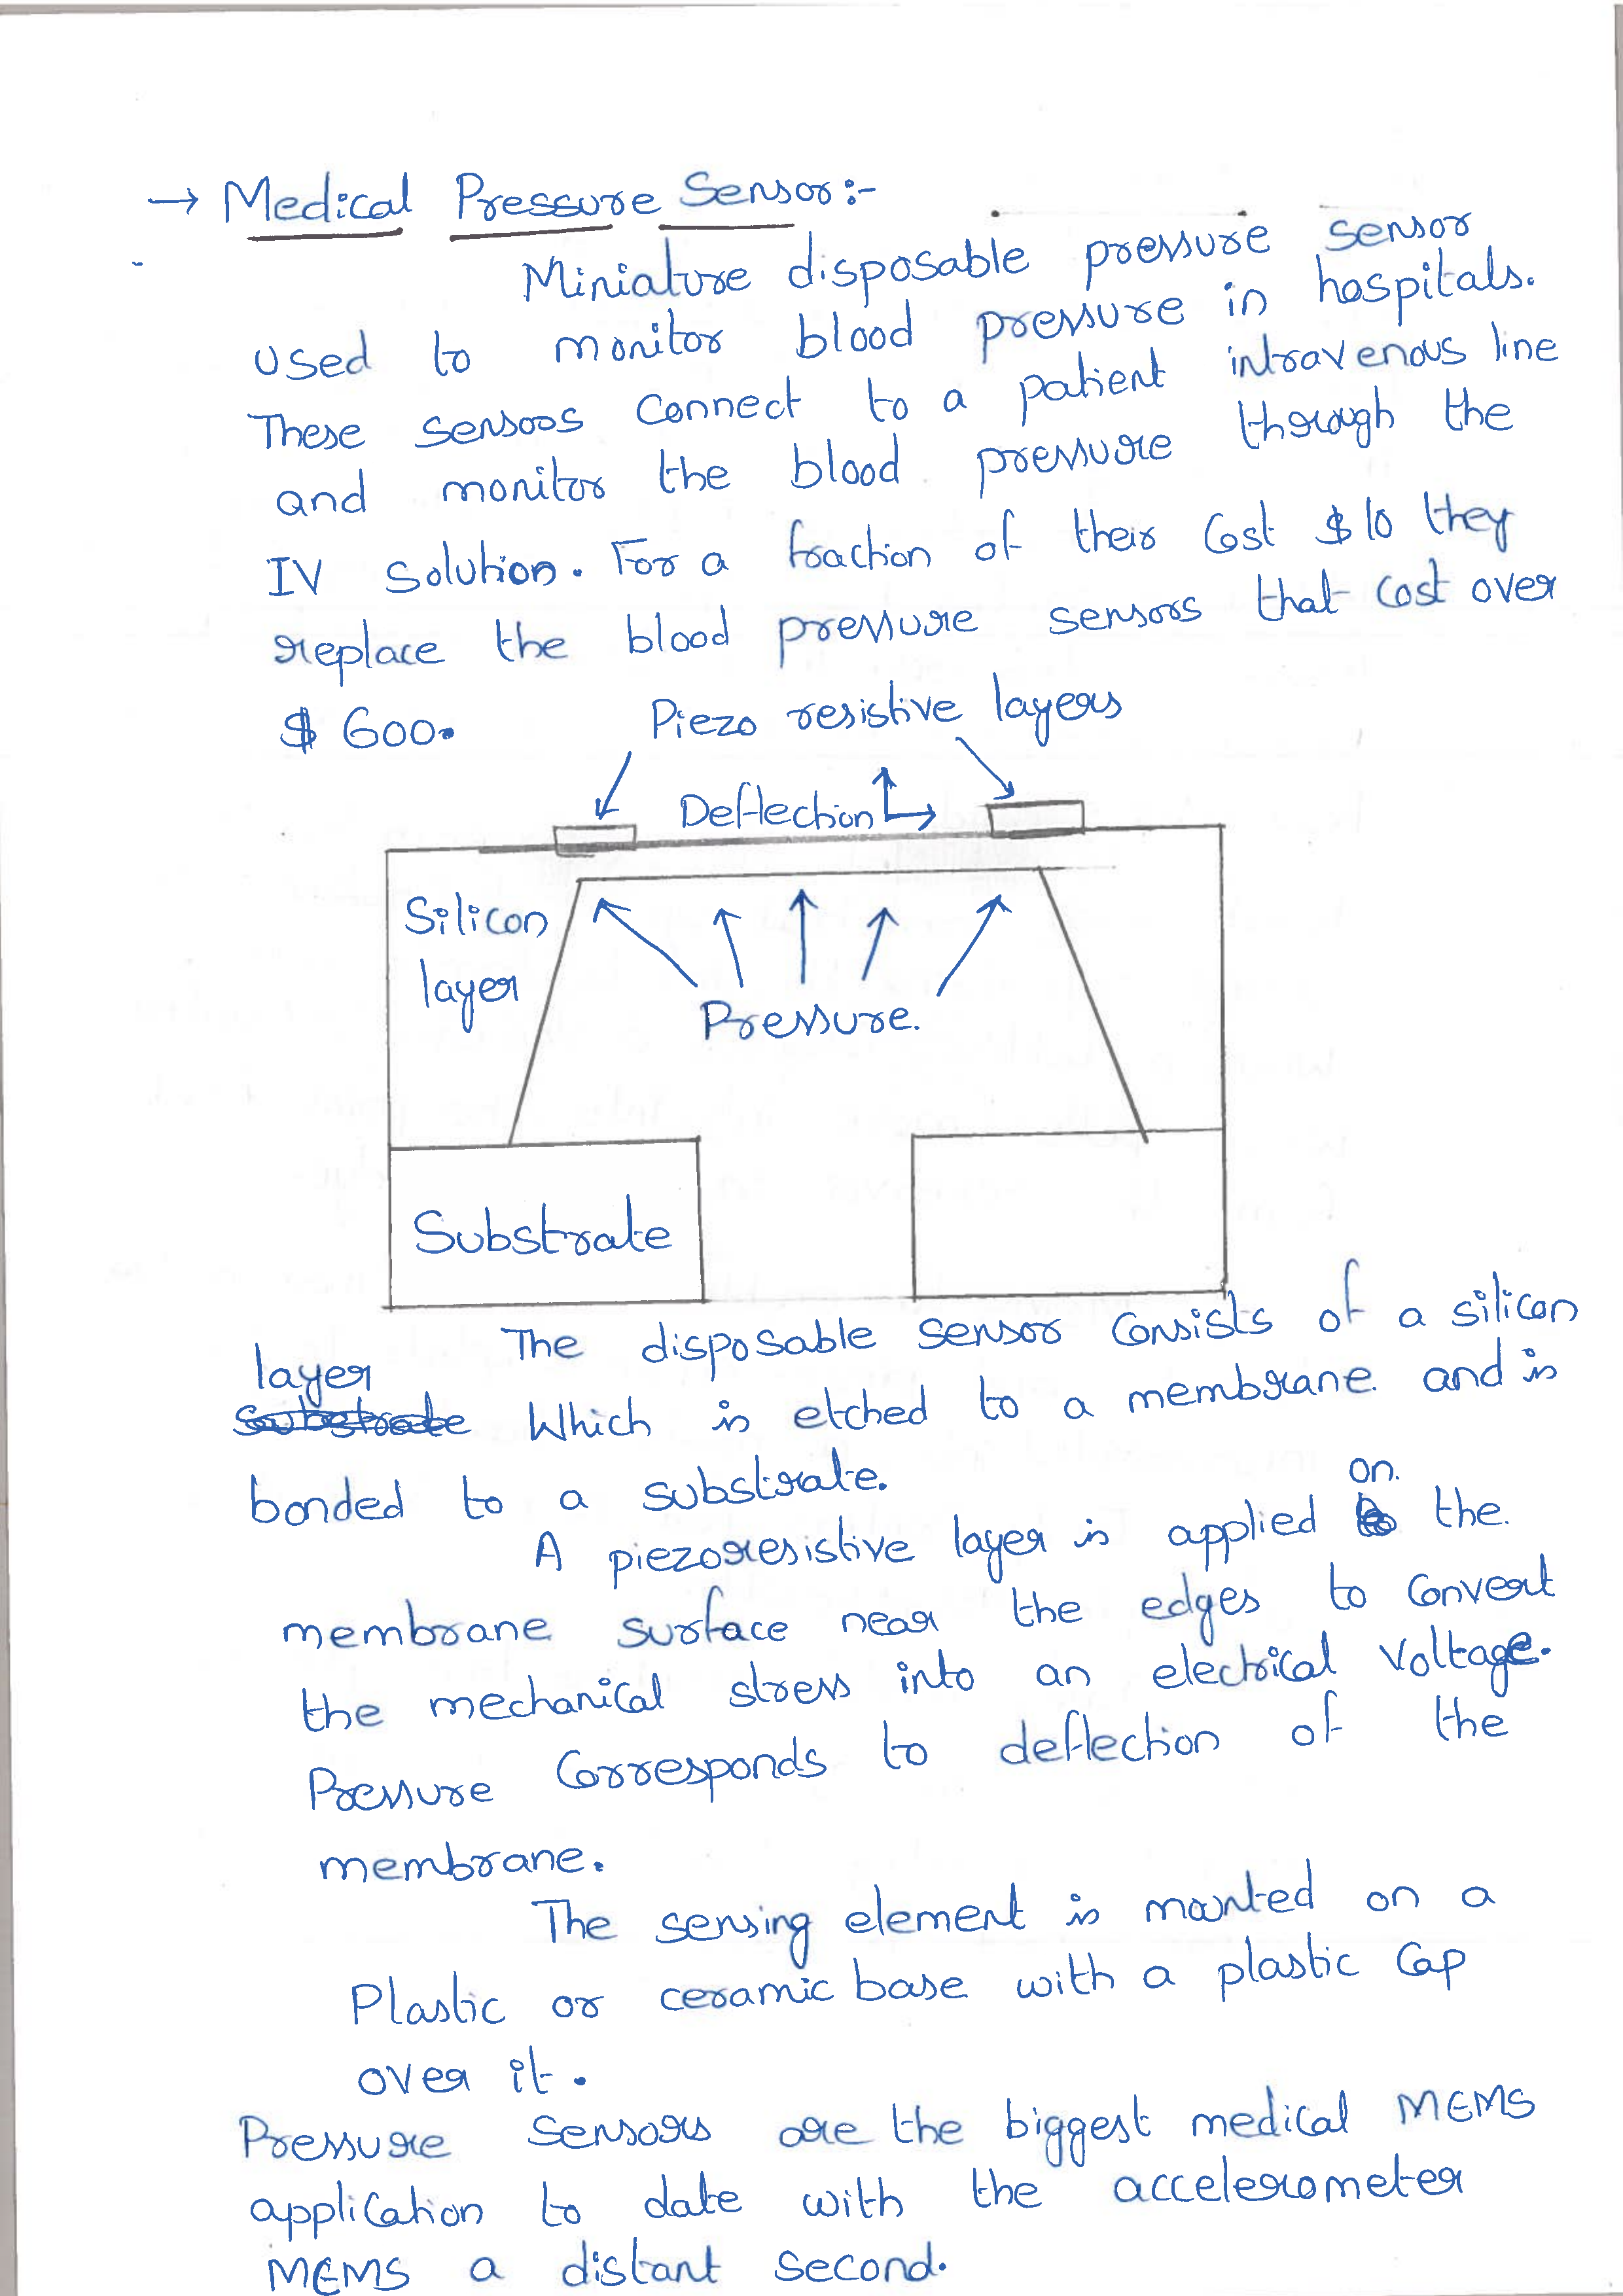 → Medical Pressure Sensor:-
Miniature disposable pressure sensor
used to monitor blood pressure in hospitals.
These sensors connect to a patient intravenous line
and monitor the blood pressure through the
IV solution. For a fraction of their Cost $10 they
replace the blood pressure sensors that cost over
$ 600.
Piezo resistive layers
Deflection
Silicon
layer
Pressure.
Substrate
The disposable sensor Consists of a silicon
layer
substrate Which is etched to a membrane and is
bonded to a substrate.
on.
A piezoresistive layer is applied to the
membrane surface near the edges to Convert
the mechanical stress into an electrical Voltage.
Pressure Corresponds to deflection of the
membrane.
The sensing element is mounted on a
Plastic or ceramic base with a plastic Cap
over it.
Pressure Sensors are the biggest medical MEMS
application to date with the accelerometer
MEMS a distant second.